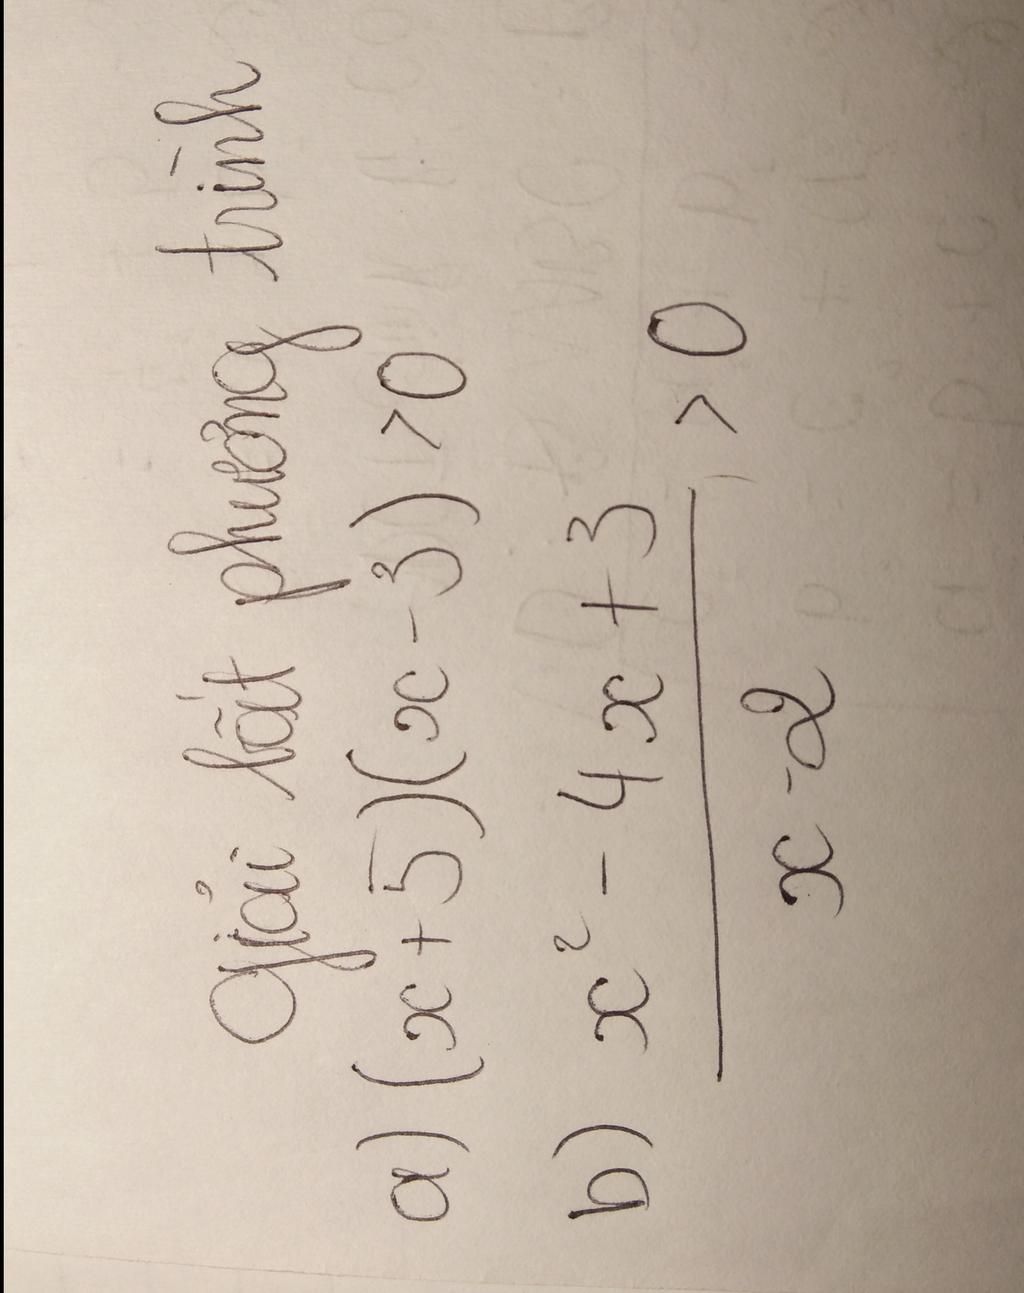 Giải bất phương trình
a) (x + 5)(x - 3) > 0
b) x² - 4x + 3 > 0
x - 2